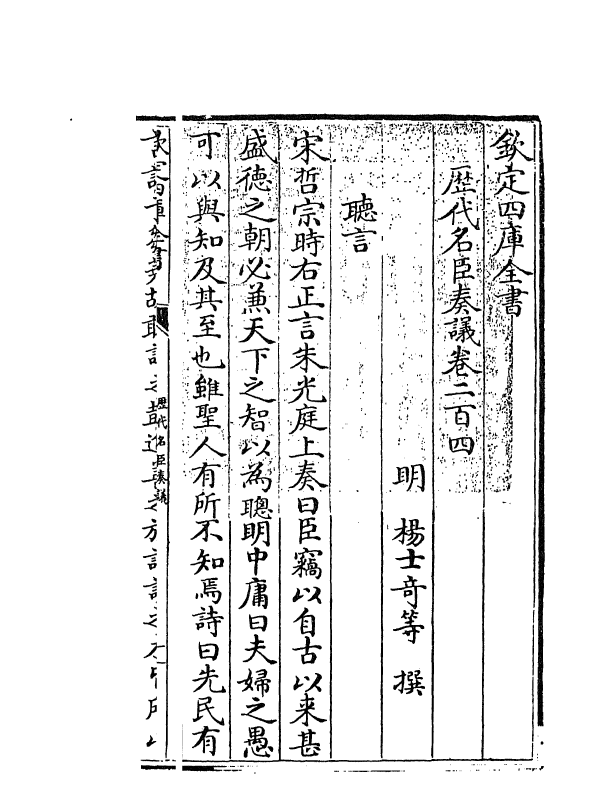 欽定四庫全書
歴代名臣奏議卷二百四
明　楊士奇等　撰
聽言
宋哲宗時右正言朱光庭上奏曰臣竊以自古以来甚
盛徳之朝必兼天下之智以為聰明中庸曰夫婦之愚
可以與知及其至也雖聖人有所不知焉詩曰先民有
歴代名臣奏議